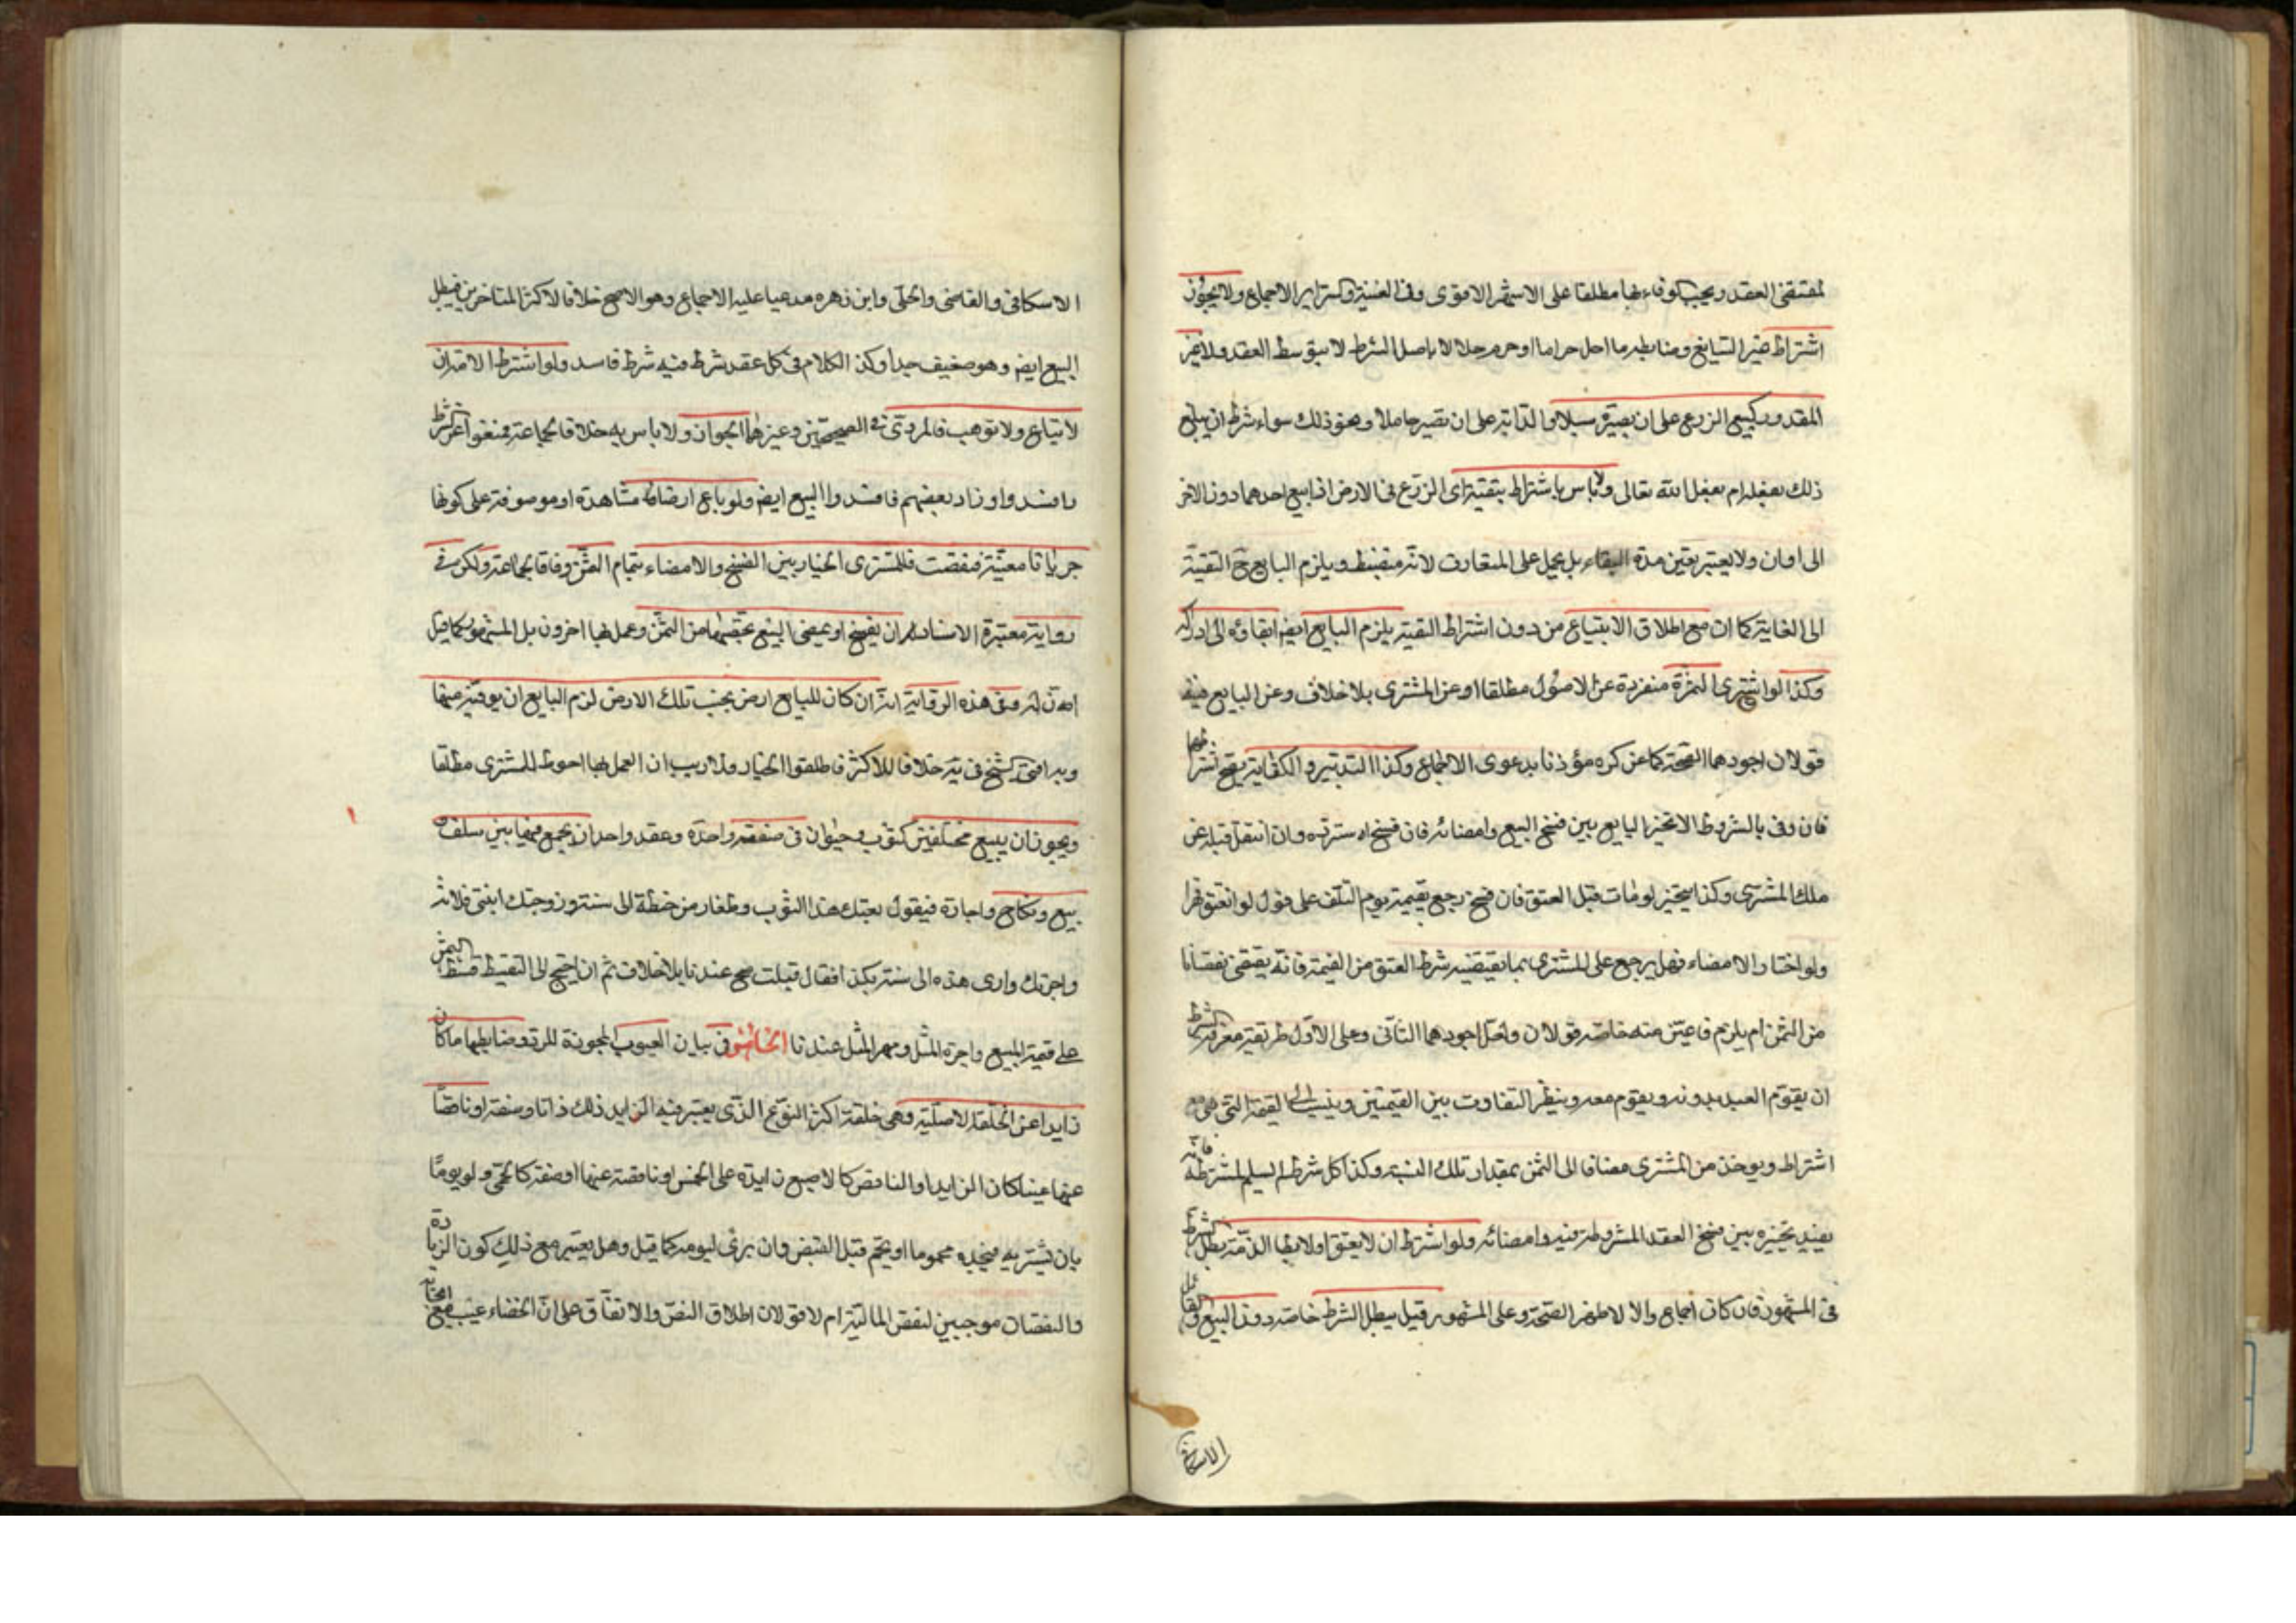 لمقتضى العقد ويجب الوفاء بها مطلقا على الاشهر الاقوى وفى الغنية والسراير الاجماع ولا يجوز
اشتراط غير السايغ وضابطه ما احل حراما او حرم حلالا لا باصل الشرط لا بتوسط العقد ولا غير
المقدور كبيع الزرع على ان يصيره سنبلا والدابة على ان تصير حاملا ونحو ذلك سواء شرط ان يبلغ
ذلك بفعله ام بفعل الله تعالى ولا باس باشتراط تبقية اى الزرع فى الارض اذا بيع احدهما دون الاخر
الى اوان ولا يعتبر تعيين مدة البقاء بل يحمل على المتعارف لانه منضبط ويلزم البايع ح التبقية
الى الغاية كما ان مع اطلاق الابتياع من دون اشتراط التبقية يلزم البايع ايضا ابقاؤه الى ادراكه
وكذا لو اشترى الثمرة منفردة عن الاصول مطلقا او عن المشترى بلا خلاف وعن البايع ففيه
قولان اجودهما الصحة كما عن كره مؤذنا بدعوى الاجماع وكذا التدبير والكتابة يصح شرطهما
فان وفى بالشروط والا تخير البايع بين فسخ البيع وامضائه فان فسخ استرده وان انتقل قبله عن
ملك المشترى وكذا يتخير لو مات قبل العتق فان فسخ رجع بقيمته يوم التلف على قول لو انعتق قهرا
ولو اختار الامضاء فهل يرجع على المشترى بما يقتضيه شرط العتق من القيمة فانه يقتضى نقصانا
من الثمن ام يلزم فاعين منه خاصة قولان ولعل اجودهما الثانى وعلى الاول طريقة معرفة الشرط
ان يقوم العبد بدونه ويقوم معه وينظر التفاوت بين القيمتين وينسب الى القيمة التى هى مع
اشتراط ويوخذ من المشترى مضافا الى الثمن بمقدار تلك النسبة وكذا كل شرط لم يسلم لمشترطه فانه
يفيد تخيره بين فسخ العقد المشروط فيه وامضائه ولو اشترط ان لا يعتق او لا يطا الامة بطل الشرط
فى المشهور فان كان اجماع والا لاظهر الصحة وعلى المشهور قيل يبطل الشرط خاصة دون البيع والقائل
الاسكافى
الاسكافى والقاضى والحلى وابن زهره مدعيا عليه الاجماع وهو الاصح خلافا لاكثر المتاخرين فيبطل
البيع ايضا وهو ضعيف جدا وكذا الكلام فى كل عقد شرط فيه شرط فاسد ولو اشترط الا مة ان
لا تباع ولا توهب فالمروى فى الصحيحين وغيرهما الجواز ولا باس به خلافا لجماعة فمنعوا عن الشرط
وافسدوا وزاد بعضهم فافسدوا البيع ايضا ولو باع ارضا مشاهدة او موصوفة على كونها
جربانا معينة فنقصت فللمشترى الخيار بين الفسخ والامضاء بتمام الثمن وفاقا لجماعة ولكن فى
رواية معتبرة الاسناد له ان يفسخ او يمضى البيع بحصتها من الثمن وعمل بها اخرون بل المشهور كما قيل
وفى هذه الرواية انه ان كان للبايع ارض بجنب تلك الارض لزم البايع ان يوفيه منها
وبه افتى الشيخ فى ية خلافا للاكثر فاطلقوا الخيار ولا ريب ان العمل بها احوط للمشترى مطلقا
ويجوز ان يبيع مختلفين كثوب وحيوان فى صفقة واحدة وعقد واحد ان يجمع فيها بين سلف و
بيع ونكاح واجارة فيقول بعتك هذا الثوب وطغار من حنطة الى سنة وزوجتك ابنتى فلانة
واجرتك دارى هذه الى سنة بكذا فقال قبلت صح عندنا بلا خلاف ثم ان احتيج الى التقسيط قسط الثمن
على قيمة المبيع واجرة المثل ومهر المثل عندنا الخامس فى بيان العيوب المجوزة للرد وضابطها ما كان
زايدا عن الخلقة الاصلية وهى خلقة اكثر النوع الذى يعتبر فيه الزايد ذلك ذاتا وصفة او ناقصا
عنها عينا كان الزايد او الناقص كالاصبع زايدة على الخمس او ناقصة عنها او صفة كالحمى ولو يوما
بان يشتريه فيجده محموما او يحم قبل القبض وان برئ ليومه كما قيل وهل يعتبر مع ذلك كون الزيادة
والنقصان موجبين لنقص المالية ام لا قولان اطلاق النص والاتفاق على ان الخصاء عيب مع ايجابه